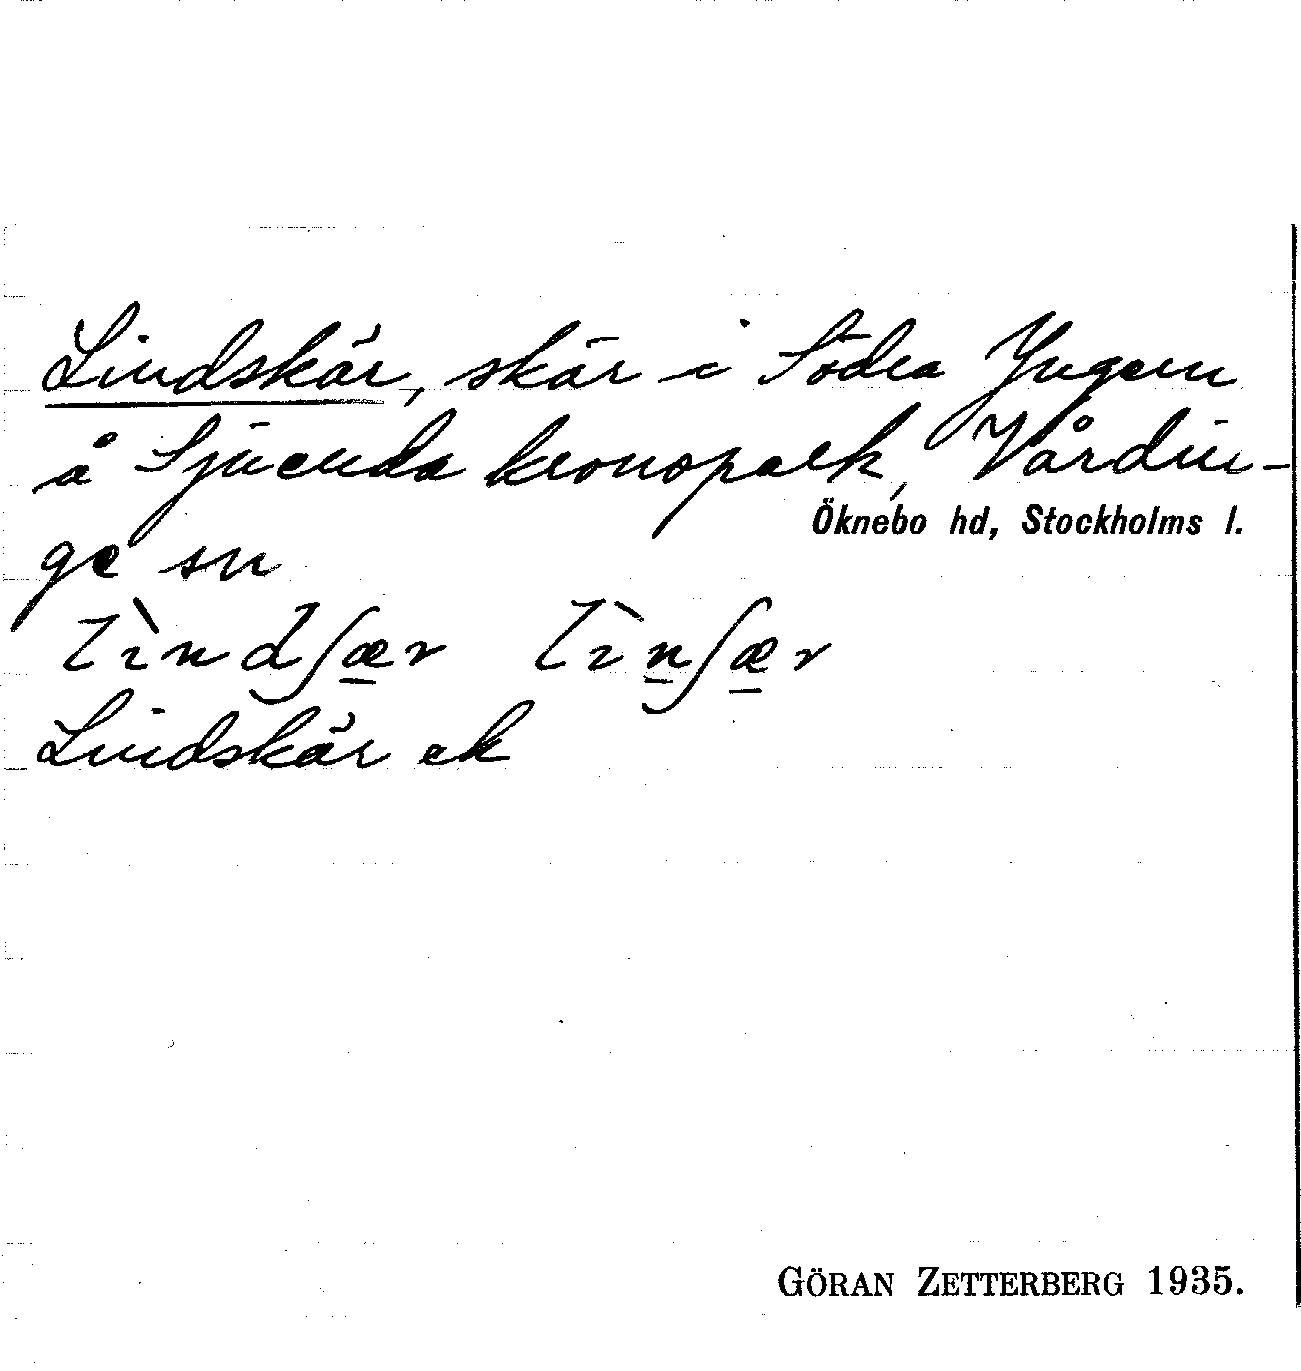 Lindskär, skär i Södra Yngern
å Sjuenda kronopark, Vårdin-
Öknebo hd, Stockholms l.
ge sn
lìndʃær lìnʃær
Lindskär ek
GÖRAN ZETTERBERG 1935.